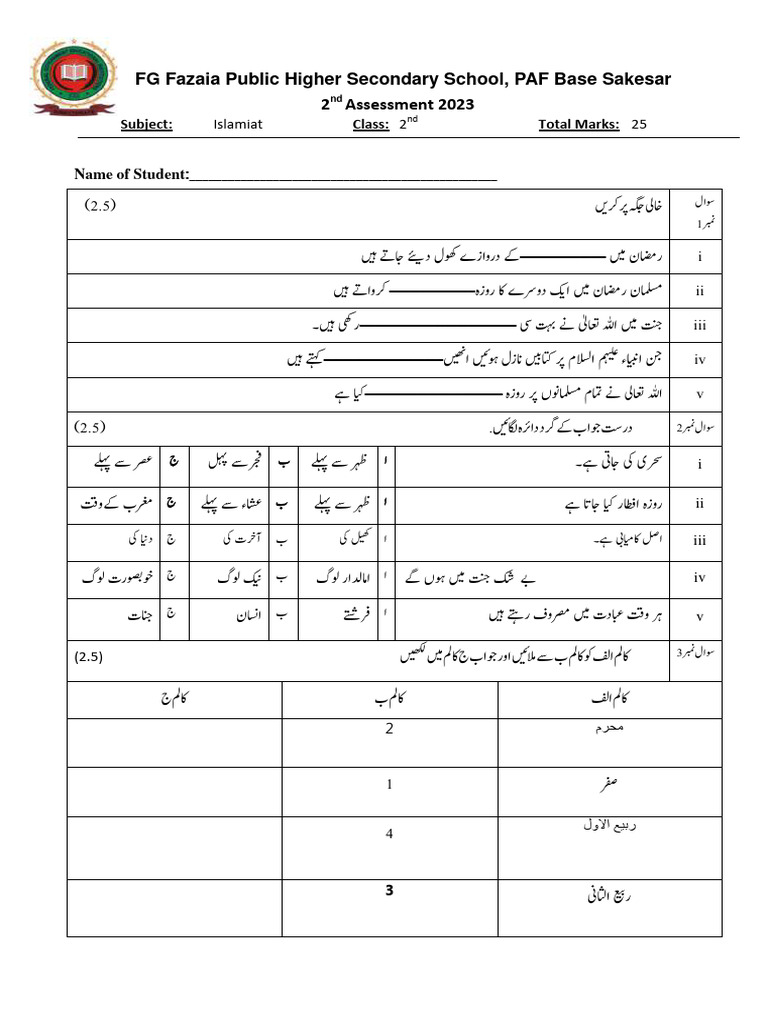 FG Fazaia Public Higher Secondary School, PAF Base Sakesar
2nd Assessment 2023
Subject: Islamiat Class: 2nd Total Marks: 25
Name of Student:________________________________________
سوال نمبر 1 خالی جگہ پر کریں (2.5)
i رمضان میں ـــــــــــــــ کے دروازے کھول دیئے جاتے ہیں
ii مسلمان رمضان میں ایک دوسرے کا روزہ ـــــــــــــــ کرواتے ہیں
iii جنت میں اللہ تعالیٰ نے بہت سی ـــــــــــــــ رکھی ہیں۔
iv جن انبیاء علیہم السلام پر کتابیں نازل ہوئیں انھیں ـــــــــــــــ کہتے ہیں
v اللہ تعالی نے تمام مسلمانوں پر روزہ ـــــــــــــــ کیا ہے
سوال نمبر 2 درست جواب کے گرد دائرہ لگائیں. (2.5)
i سحری کی جاتی ہے۔ ا ظہر سے پہلے ب فجر سے پہل ج عصر سے پہلے
ii روزہ افطار کیا جاتا ہے ا ظہر سے پہلے ب عشاء سے پہلے ج مغرب کے وقت
iii اصل کامیابی ہے۔ ا کھیل کی ب آخرت کی ج دنیا کی
iv بے شک جنت میں ہوں گے ا امالدار لوگ ب نیک لوگ ج خوبصورت لوگ
v ہر وقت عبادت میں مصروف رہتے ہیں ا فرشتے ب انسان ج جنات
سوال نمبر 3 کالم الف کو کالم ب سے ملائیں اور جواب ج کالم میں لکھیں (2.5)
کالم الف کالم ب کالم ج
محرم 2
صفر 1
ربیع الاول 4
ربیع الثانی 3